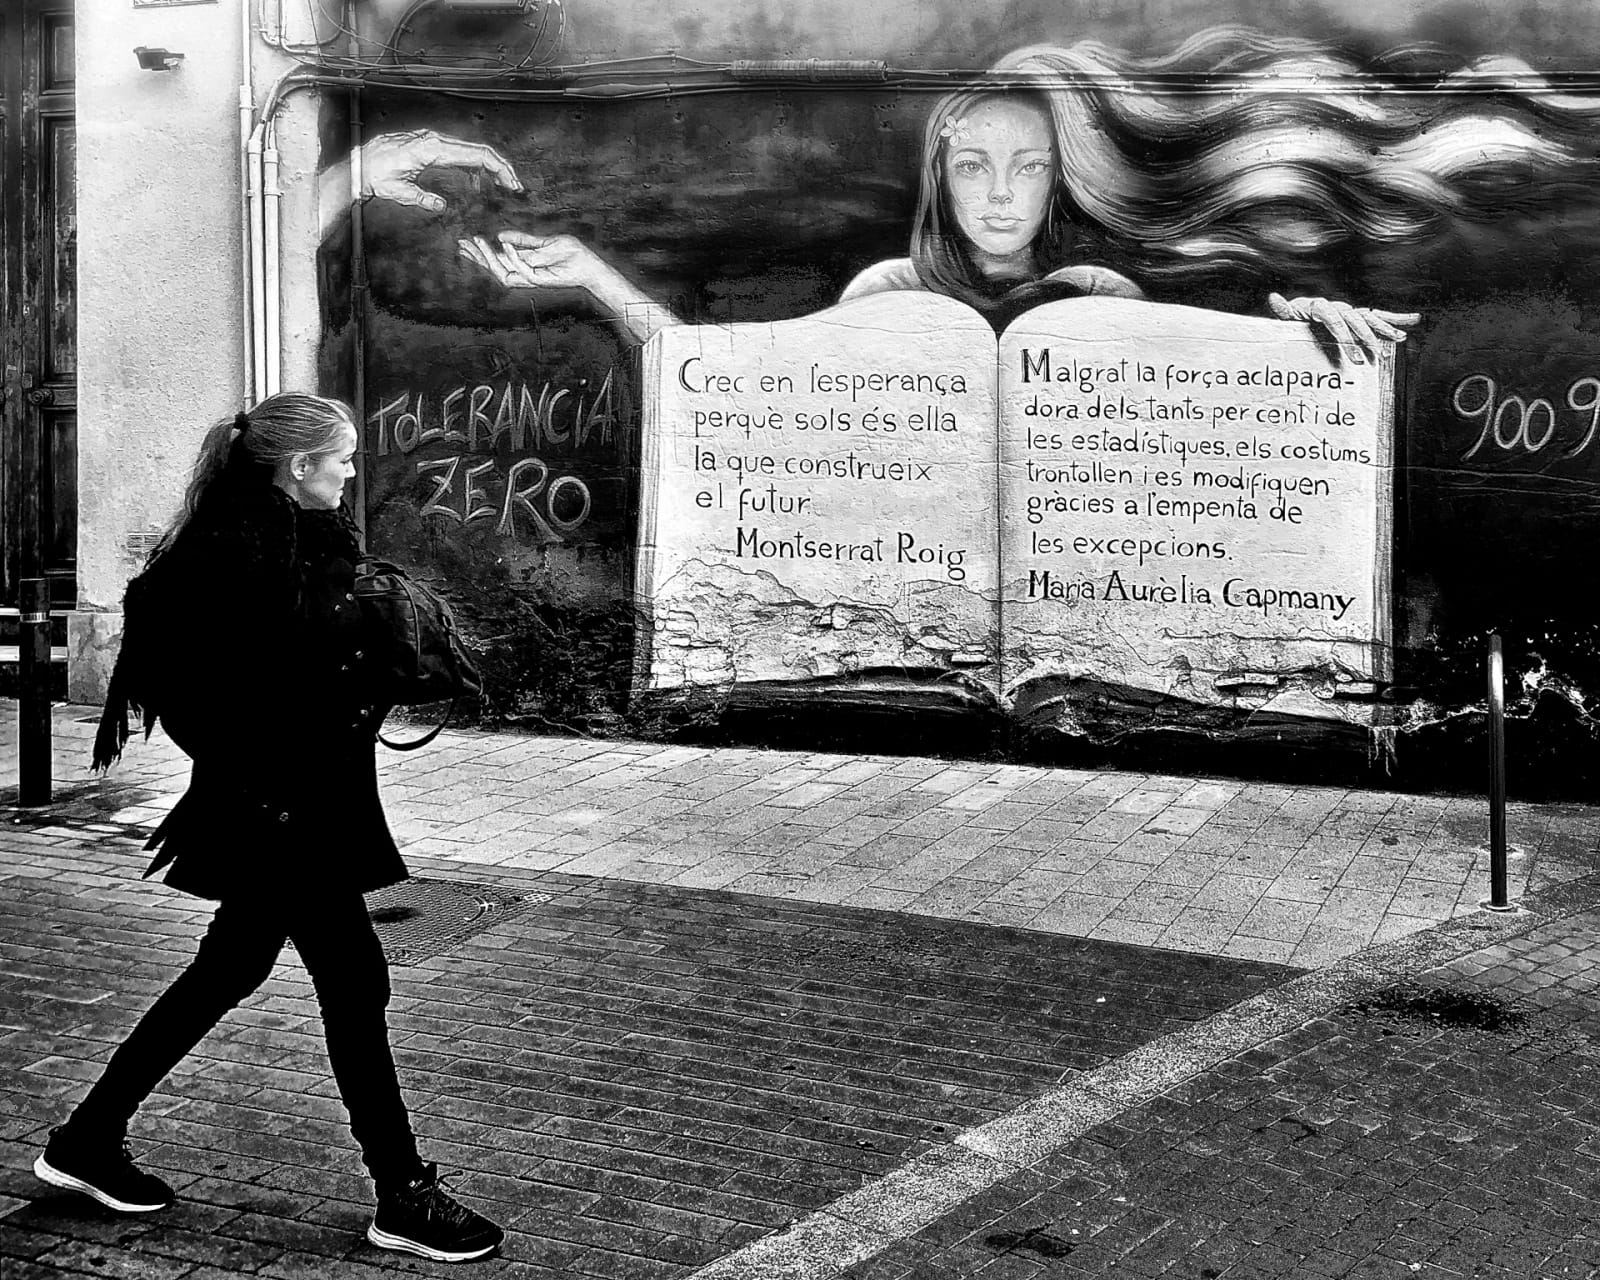 TOLERANCiA
ZERO
Crec en l'esperança
perquè sols és ella
la que construeix
el futur.
Montserrat Roig
Malgrat la força aclapara-
dora dels tants per cent i de
les estadístiques, els costums
trontollen i es modifiquen
gràcies a l'empenta de
les excepcions.
Maria Aurèlia Capmany
900 9